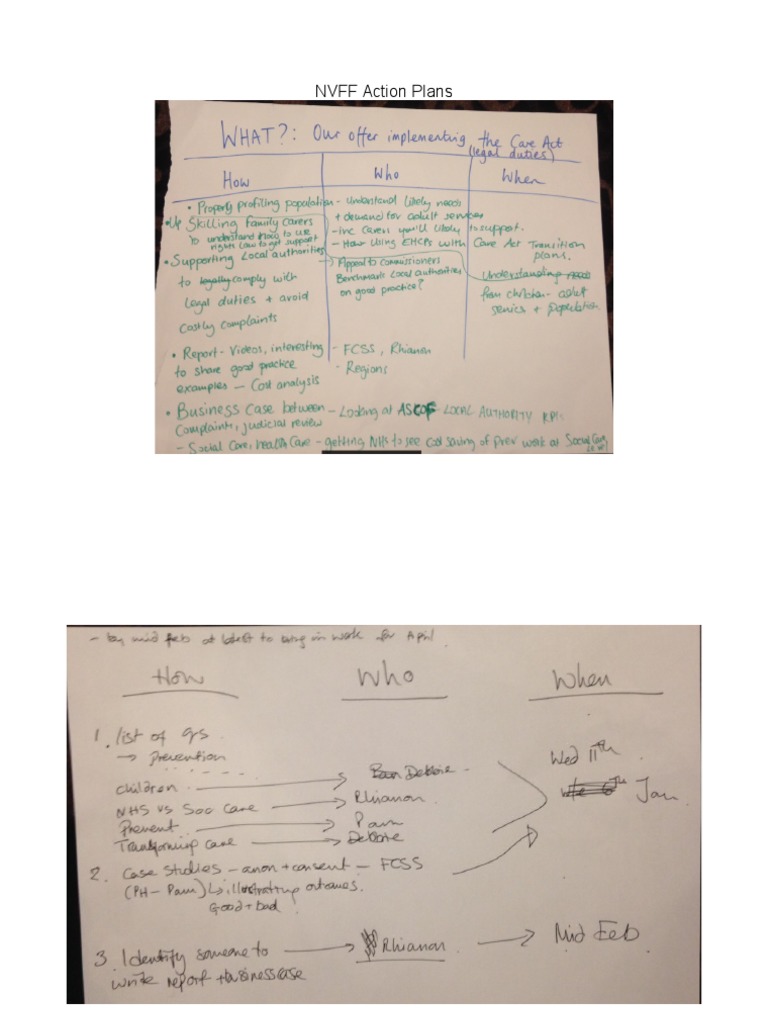 NVFF Action Plans
WHAT?: Our offer implementing the Care Act
(legal duties)
How Who When
• Properly profiling population - Understand likely needs
+ demand for adult services
• Up Skilling family carers
to understand how to use
rights law to get support
- inc carers you'll likely to support.
- How Using EHCPs with Care Act Transition
plans.
• Supporting Local authorities
to legally comply with
legal duties + avoid
costly complaints
→ Appeal to commissioners
Benchmark Local authorities
on good practice?
Understanding needs
from children - adult
services + population
• Report - Videos, interesting
to share good practice
examples - Cost analysis
- FCSS, Rhianon
- Regions
• Business Case between - Looking at ASCOF LOCAL AUTHORITY KPIs
Complaints, judicial review
- Social Care, health Care - getting NHS to see cost saving of prev work at Social Care
level
- by mid Feb at latest to bring in work for April
How Who When
1. list of qs
→ Prevention
Children → Debbie
NHS vs Soc Care → Rhianon
Prevent → Pam
Transforming care → Debbie
Wed 11th
Jan
2. Case studies - anon + consent - FCSS
(PH - Pam) ↳ illustrating outcomes.
Good + bad
3. Identify someone to → Rhianon → Mid Feb
write report + business case